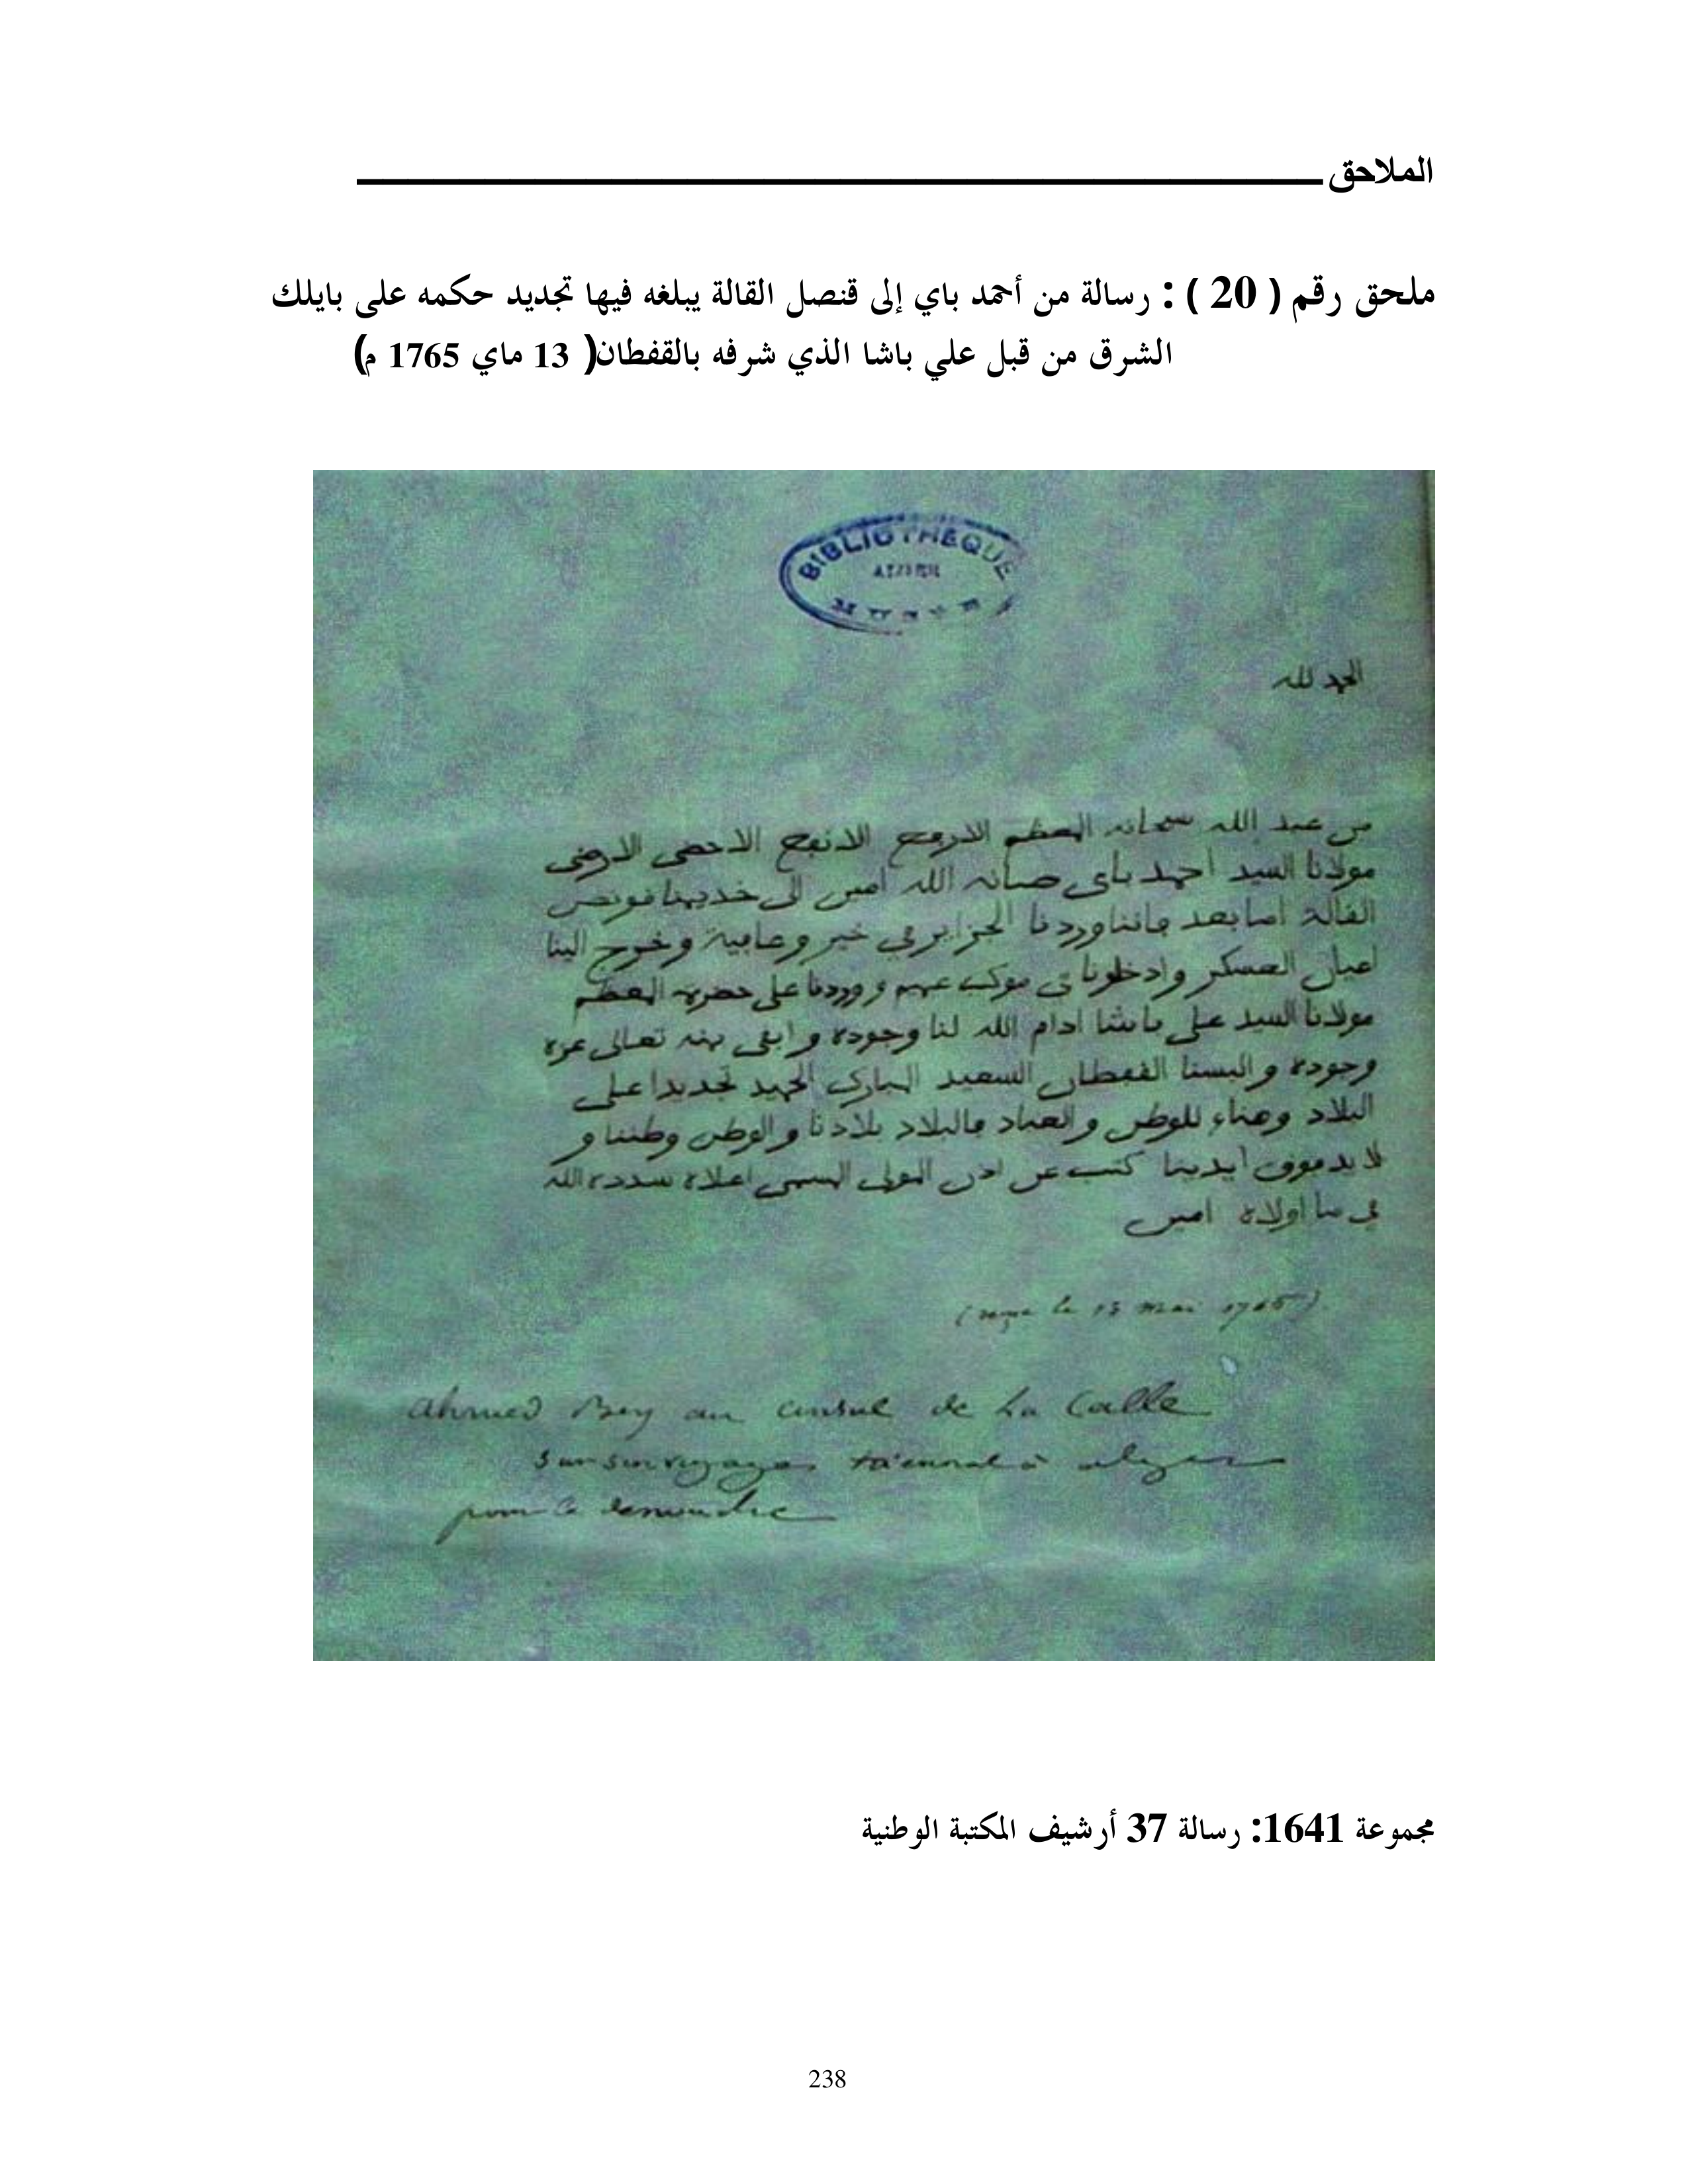 الملاحق
ملحق رقم ( 20 ) : رسالة من أحمد باي إلى قنصل القالة يبلغه فيها تجديد حكمه على بايلك
الشرق من قبل علي باشا الذي شرفه بالقفطان( 13 ماي 1765 م)
BIBLIOTHEQUE
الحمد لله
من عبد الله سبحانه المعظم الارفع الانفع الاحضى الارضى
مولانا السيد احمد باي صانه الله امين الى خديمنا قونص
القالة اما بعد فاننا وردنا الجزاير في خير وعافية وخرج الينا
اعيان العسكر وادخلونا في موكب عهم ووردنا على حضرة المعظم
مولانا السيد علي باشا ادام الله لنا وجوده وابقى بمنه تعالى عزه
وجوده والبسنا القفطان السعيد المبارك الحميد تجديدا على
البلاد وهناء للوطن والعباد فالبلاد بلادنا والوطن وطننا و
لا يد فوق ايدينا كتب عن اذن المولى المسمى اعلاه سدده الله
في ما اولاه امين
(reçue le 13 mai 1765)
Ahmed Bey au consul de La Calle
sur son voyage triennal à Alger
pour le denouche
مجموعة 1641: رسالة 37 أرشيف المكتبة الوطنية
238